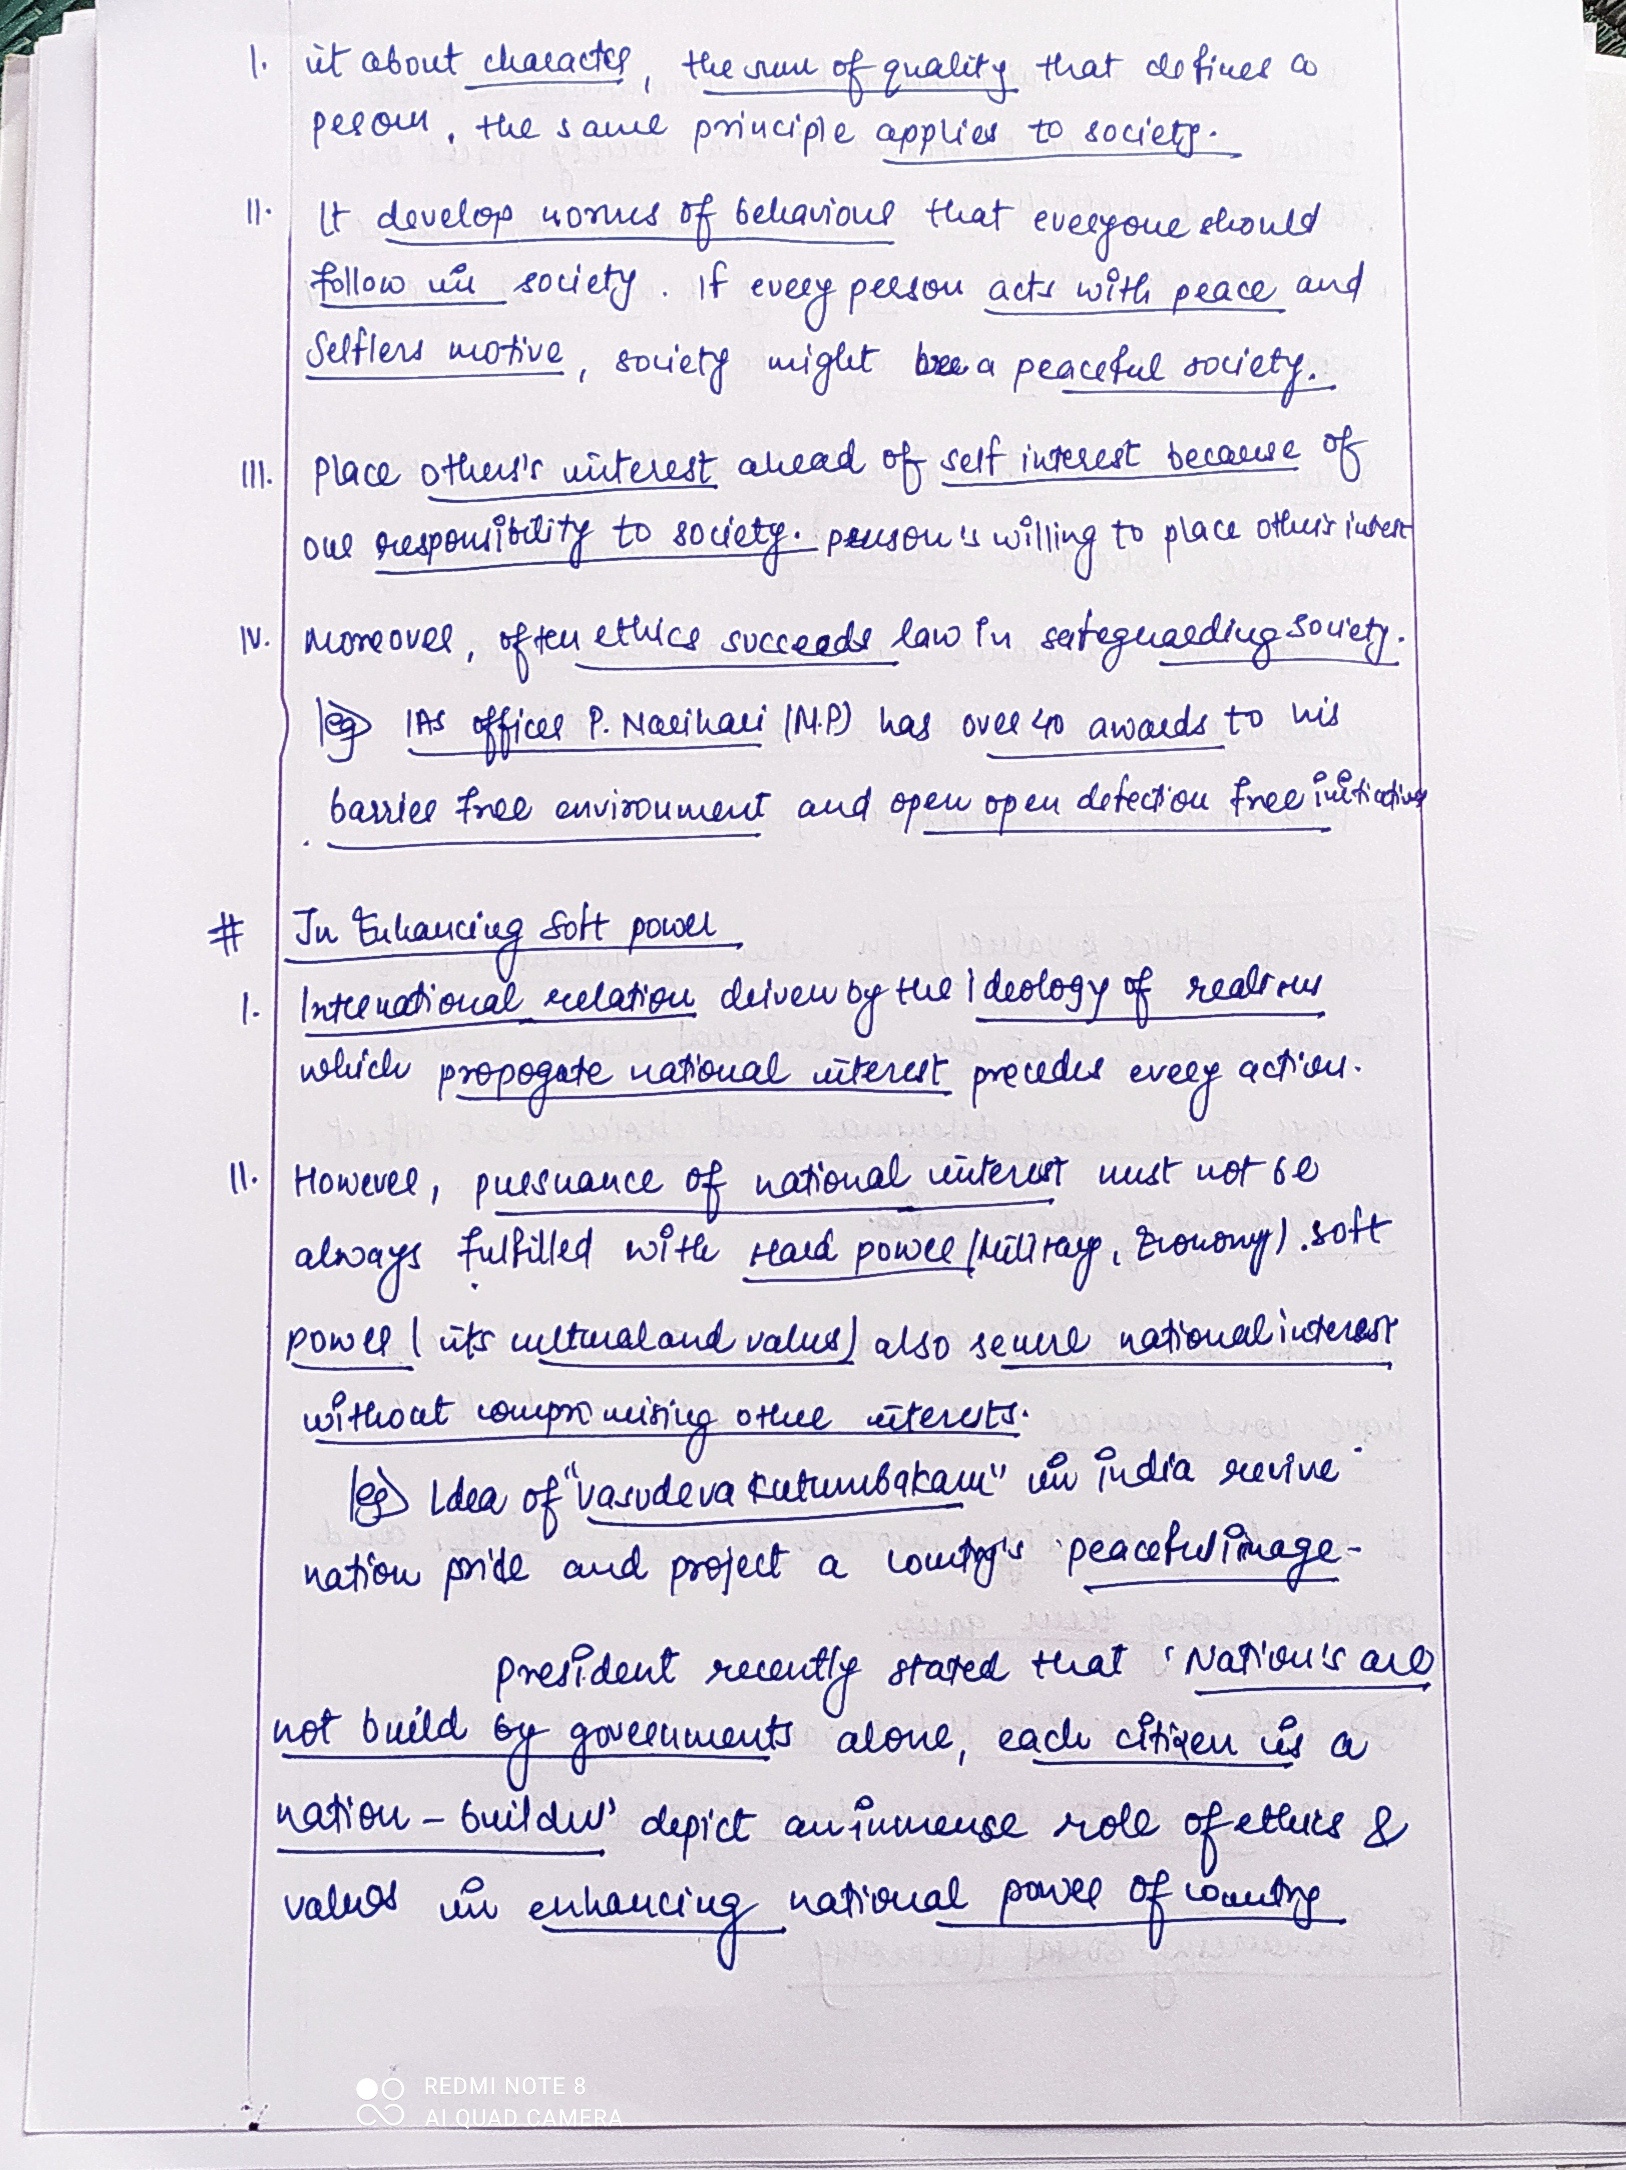 I. it about character, the sum of quality that defines a
person, the same principle applies to society.
II. It develop norms of behaviour that everyone should
follow in society. If every person acts with peace and
Selfless motive, society might be a peaceful society.
III. Place others's interest ahead of self interest because of
our responsibility to society. person's willing to place other's interest
IV. Moreover, often ethics succeeds law in safeguarding society.
eg IAS officer P. Narihari (M.P) has over 40 awards to his
barrier free environment and open open defection free initiatives
# In Enhancing Soft power
I. International relation driven by the Ideology of realism
which propogate national interest precedes every action.
II. However, pursuance of national interest must not be
always fulfilled with Hard power (Military, Economy). Soft
power (its cultural and values) also secure national interest
without compromising other interests.
eg Idea of "Vasudeva Kutumbakam" in india revive
nation pride and project a country's peaceful image -
President recently stated that 'Nation's are
not build by governments alone, each citizen is a
nation - builder' depict an immense role of ethics &
values in enhancing national power of country
REDMI NOTE 8
AI QUAD CAMERA